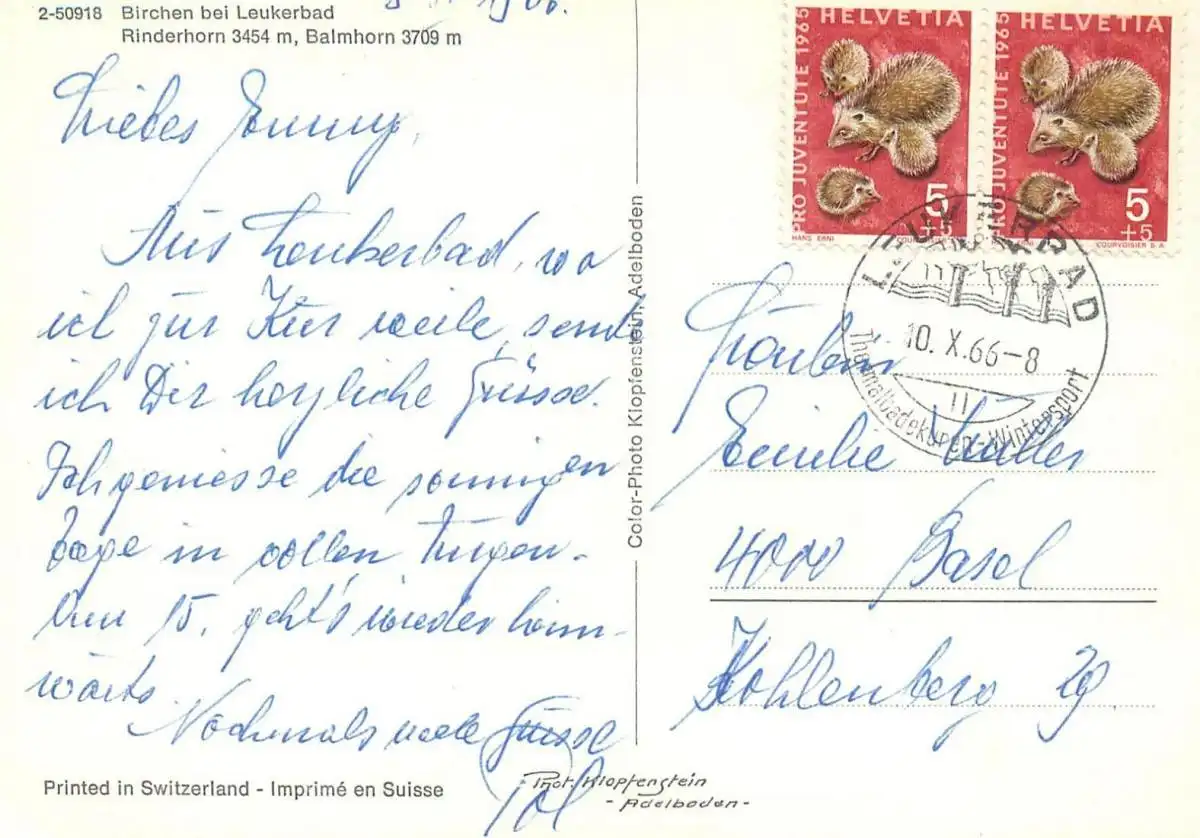 2-50918 Birchen bei Leukerbad
Rinderhorn 3454 m, Balmhorn 3709 m
Liebes Emmy,
Aus Leukerbad, wo
ich zur Kur weile, sende
ich Dir herzliche Grüsse.
Ich geniesse die sonnigen
Tage in vollen Zügen.
Am 15. geht's wieder heim-
wärts
Nochmals viele Grüsse
Printed in Switzerland - Imprimé en Suisse
Phot. Klopfenstein
- Adelboden -
Color-Photo Klopfenstein, Adelboden
HELVETIA
PRO JUVENTUTE 1965
5
+5
HANS ERNI
HELVETIA
PRO JUVENTUTE 1965
5
+5
COURVOISIER S.A.
LEUKERBAD
10. X. 66-8
Thermalbadekuren - Wintersport
Fräulein
Emilie
4000 Basel
Kohlenberg 29